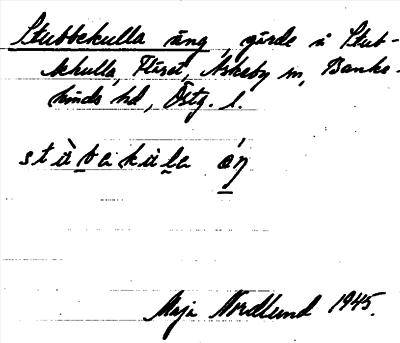 Stubbekulla äng, gärde i Stub-
bkulla, Flisa, Askeby sn, Banke-
kinds hd, Östg. l.
stùbakùla áŋ
Maja Nordlund 1945.